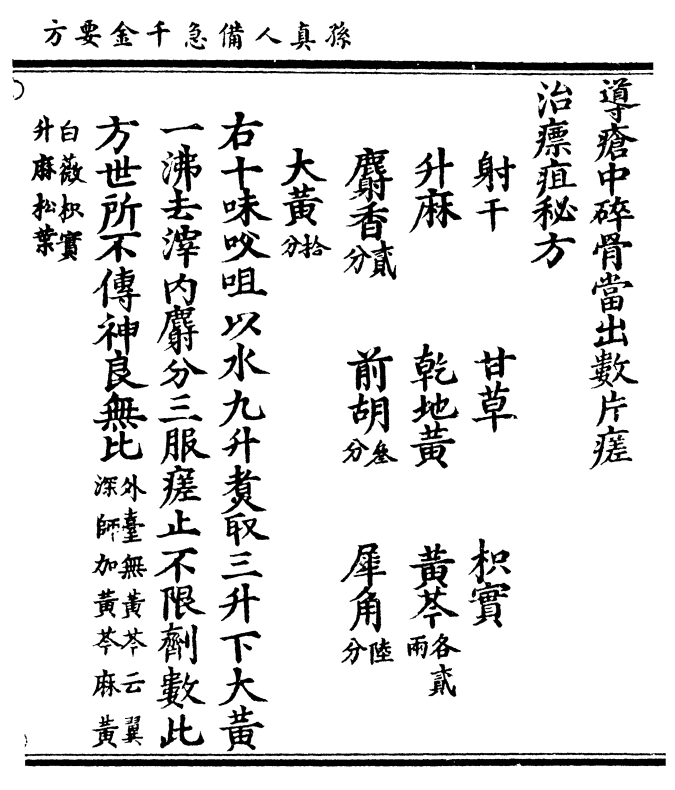 孫真人備急千金要方
導瘡中碎骨當出數片瘥
治瘭疽秘方
射干 甘草 枳實
升麻 乾地黃 黃芩各貳兩
麝香貳分 前胡叁分 犀角陸分
大黃拾分
右十味㕮咀以水九升煑取三升下大黃
一沸去滓內麝分三服瘥止不限劑數此
方世所不傳神良無比外臺無黃芩云翼深師加黃芩麻黃
白薇枳實升麻松葉